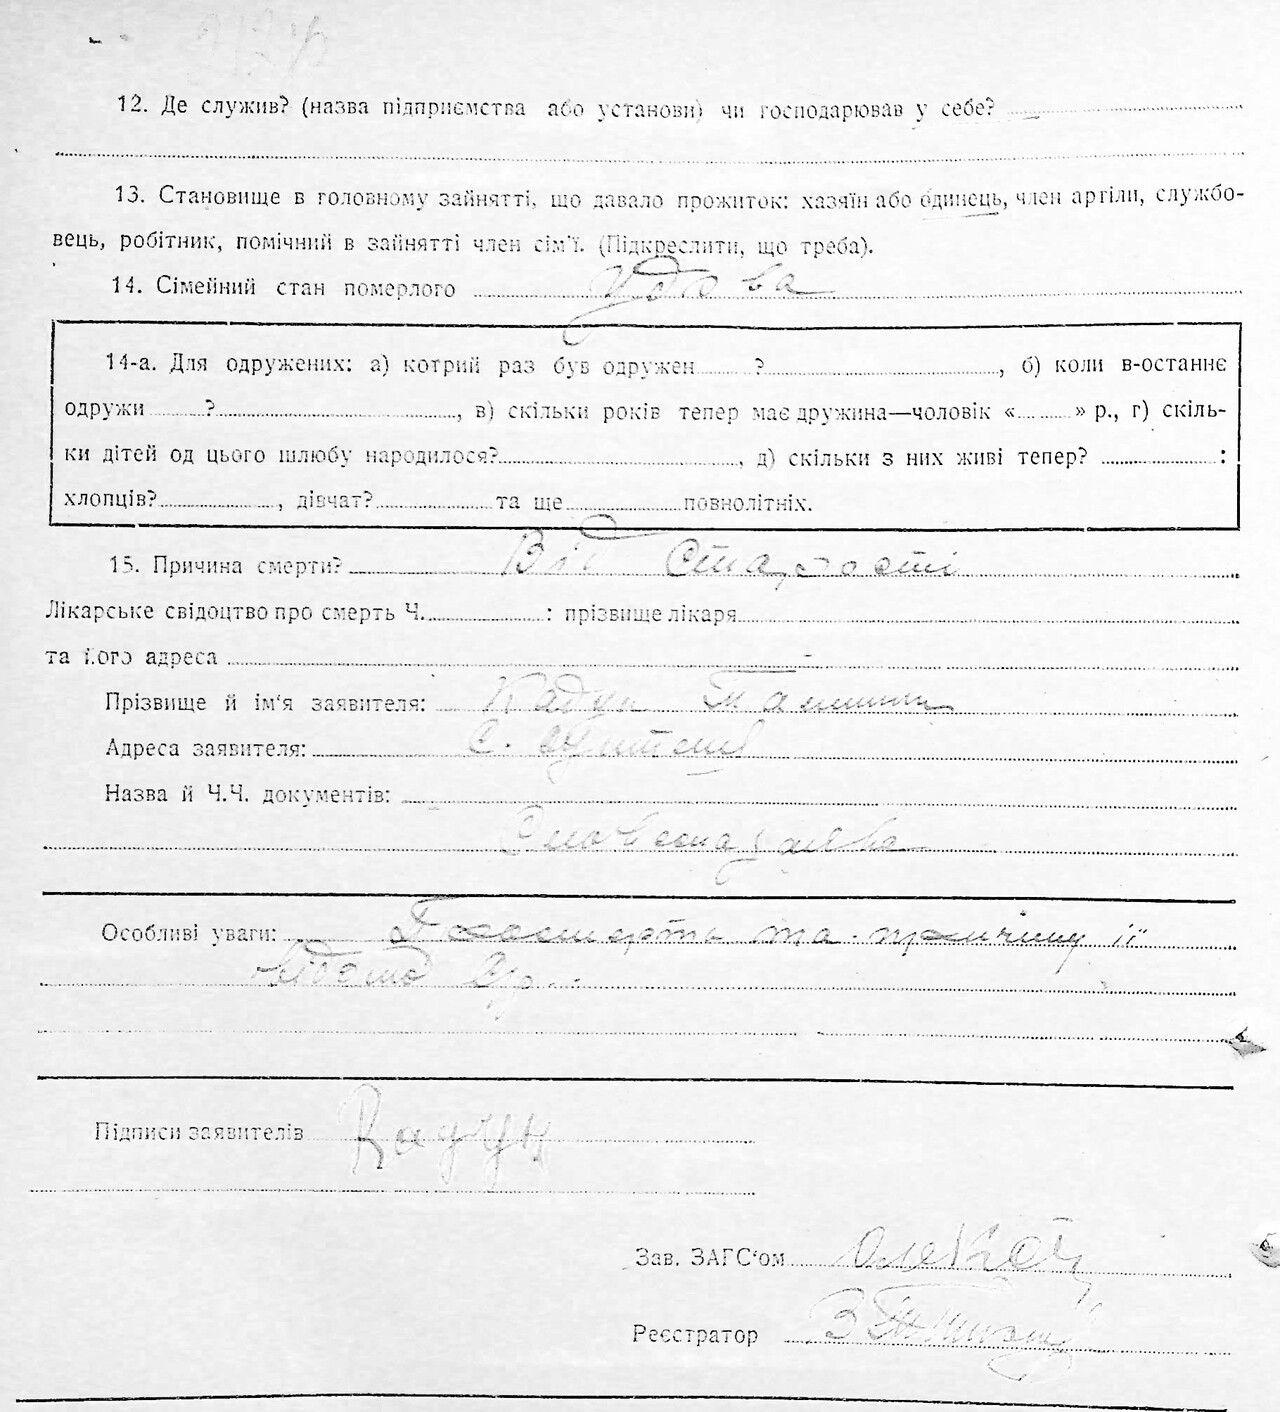 12. Де служив? (назва підприємства або установи) чи господарював у себе?
13. Становище в головному зайнятті, що давало прожиток: хазяїн або одинець, член артіли, службо-
вець, робітник, помічний в зайнятті член сім'ї. (Підкреслити, що треба).
14. Сімейний стан померлого удова
14-а. Для одружених: а) котрий раз був одружен ? , б) коли в-останнє
одружи ? , в) скільки років тепер має дружина—чоловік « » р., г) скіль-
ки дітей од цього шлюбу народилося? , д) скільки з них живі тепер? :
хлопців? , дівчат? та ще повнолітніх.
15. Причина смерти? Від старости
Лікарське свідоцтво про смерть Ч. : прізвище лікаря
та його адреса
Прізвище й ім'я заявителя: Кадун
Адреса заявителя: С.
Назва й Ч.Ч. документів:
Особливі уваги: та причину її
відомо
Підписи заявителів Кадун
Зав. ЗАГС'ом
Реєстратор